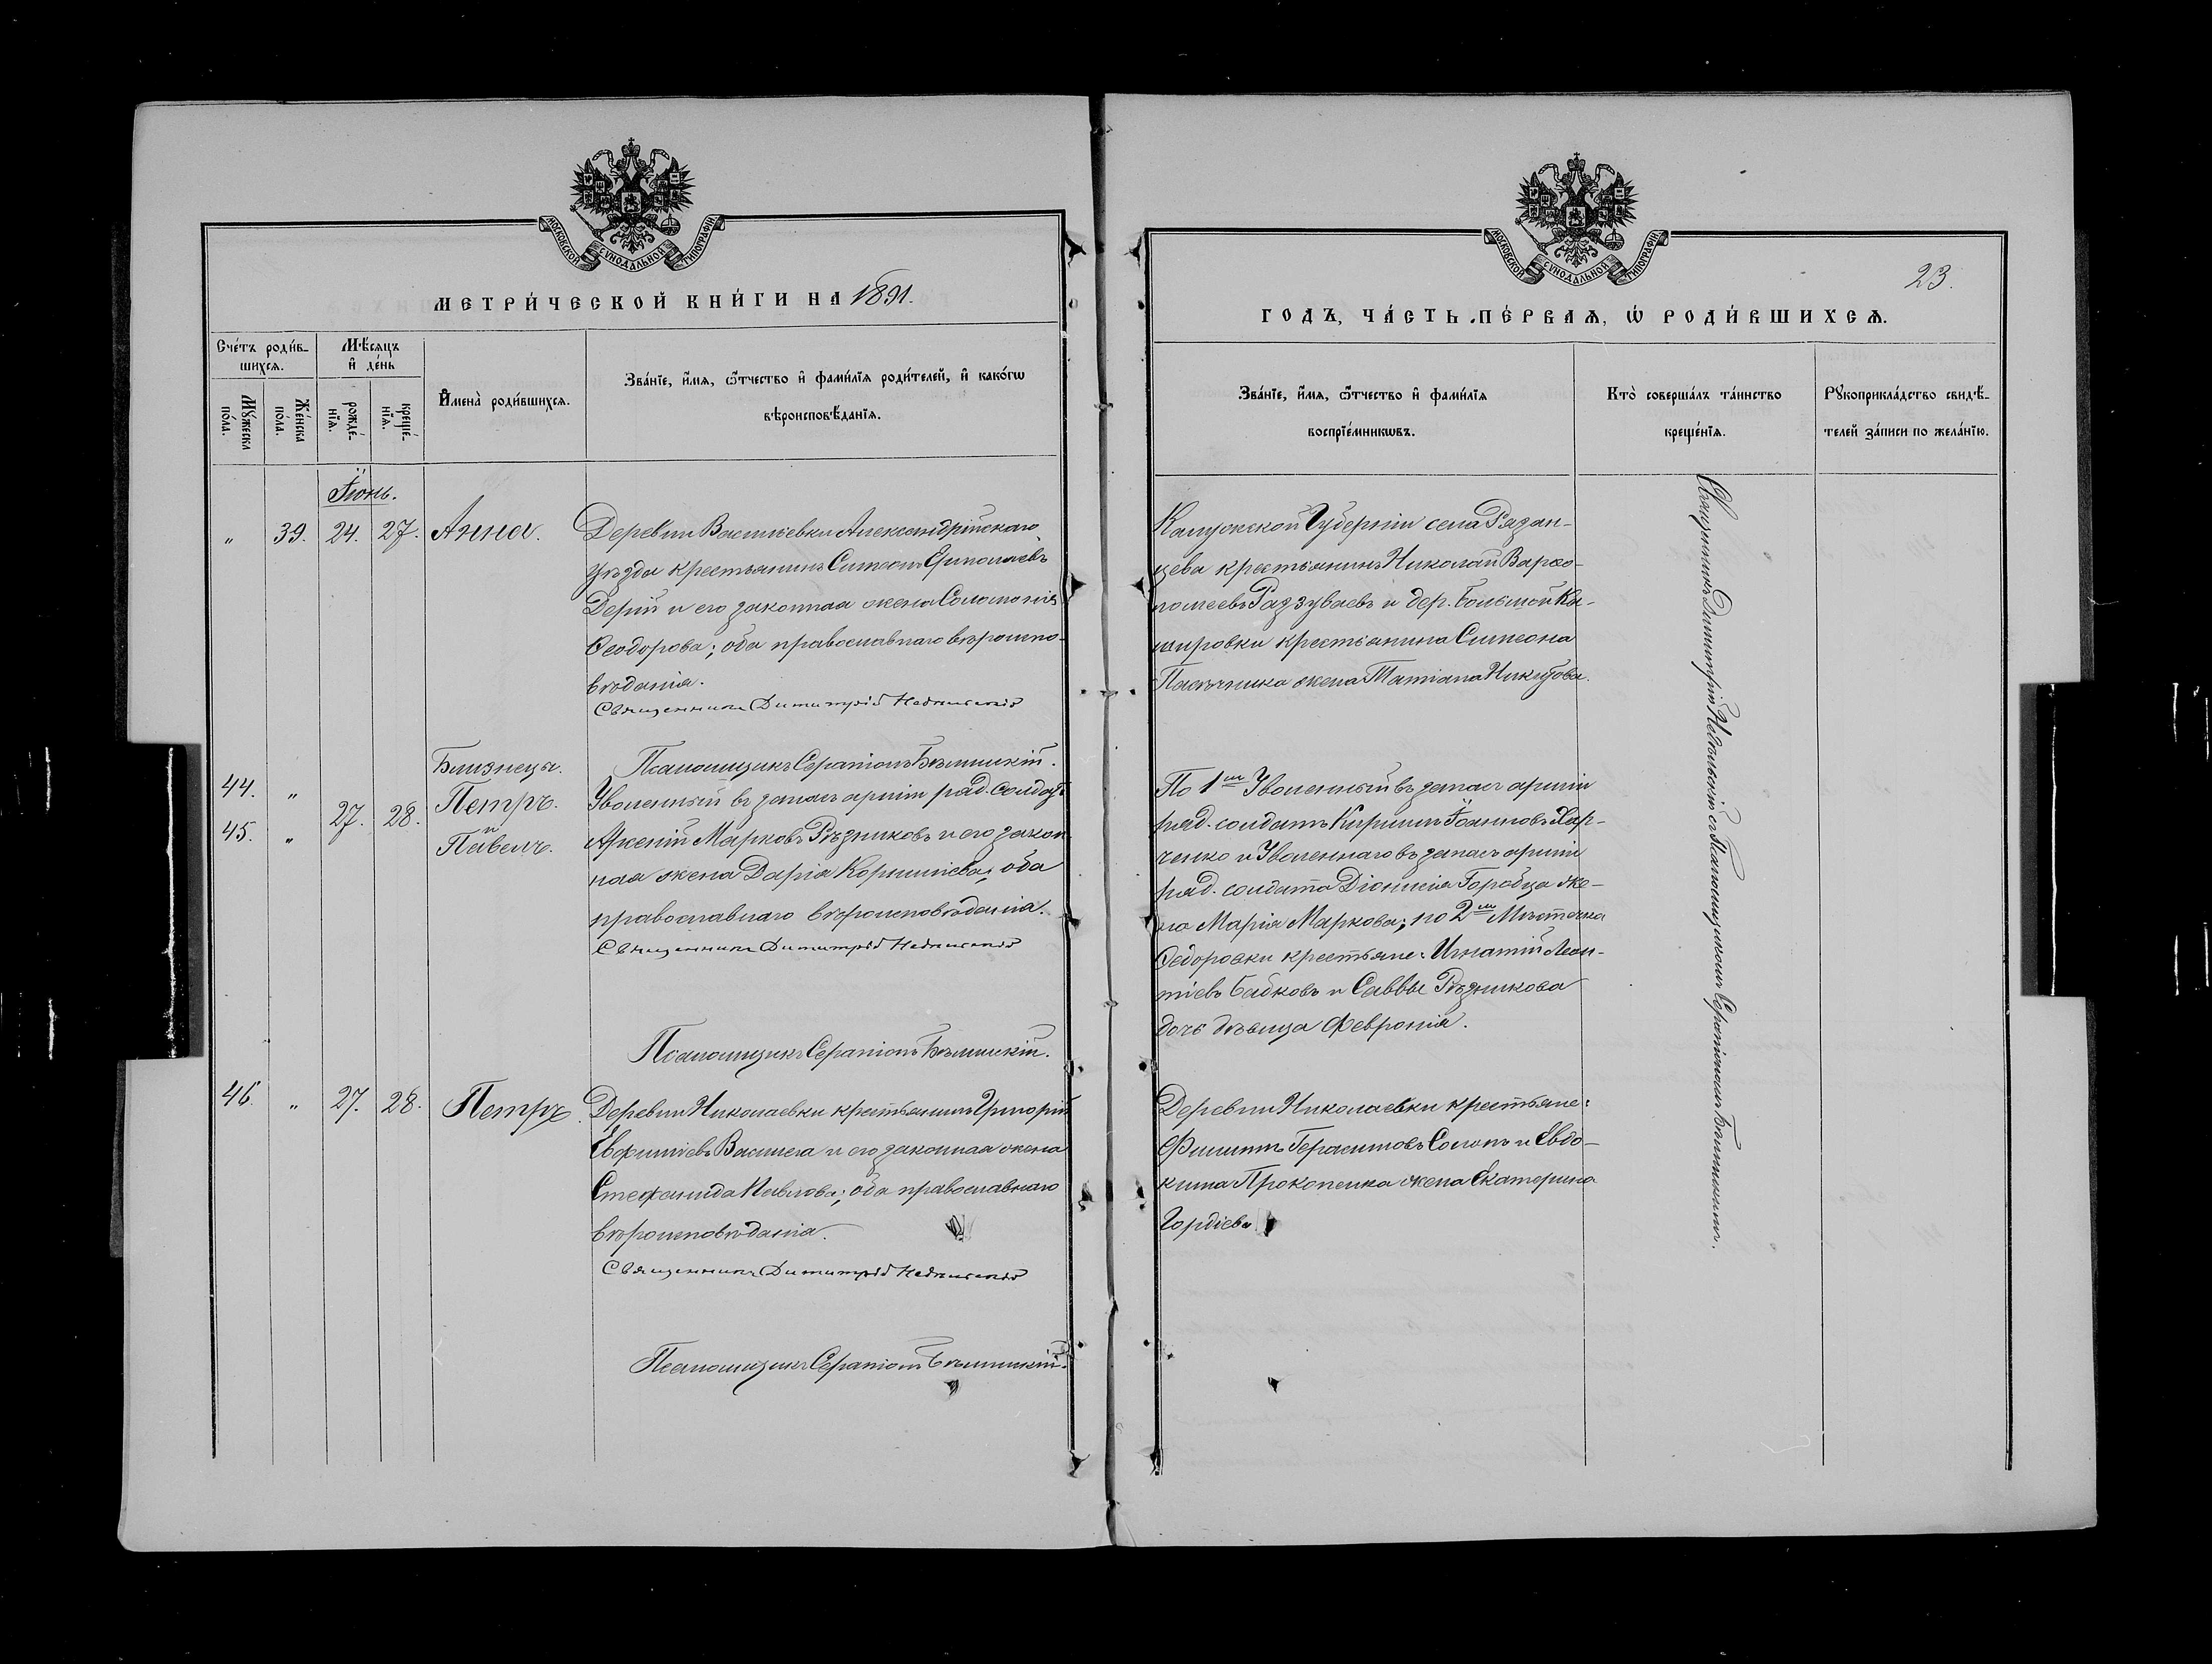 МОСКОВСКОЙ СѴНОДАЛЬНОЙ ТИПОГРАФІИ
МЕТРИ́ЧЕСКОЙ КНИ́ГИ НА 1891.
Сче́тъ роди́в-
шихсѧ.
Мѣ́сяцъ
и҆ де́нь
Мꙋ́жеска
по́ла.
Же́нска
по́ла.
рожде́-
нїѧ.
креще́-
нїѧ.
И҆мена̀ роди́вшихсѧ.
Зва́нїе, и҆́мѧ, ѻ҆́тчество и҆ фами́лїѧ роди́телей, и҆ како́гѡ
вѣроисповѣ́данїѧ.
Іюнь.
" 39. 24. 27. Анна.
Деревни Василіевки Александрійскаго
уѣзда крестьянинъ Симеонъ
Дерій и его законная жена Соломонія
Ѳеодорова; оба православнаго вѣроиспо-
вѣданія.
Священникъ Димитрій
Псаломщикъ Серапіонъ
44. "
45. "
27. 28.
Близнецы.
Петръ.
и
Павелъ.
Уволенный въ запасъ арміи ряд. солдатъ
Арсеній Марковъ Рѣзниковъ и его закон
ная жена Дарія Корниліева, оба
православнаго вѣроисповѣданія.
Священникъ Димитрій
Псаломщикъ Серапіонъ
46. " 27. 28. Петръ.
Деревни Николаевки крестьянинъ Григорій
Евфиміевъ Василега и его законная жена
Стефанида Павлова; оба православнаго
вѣроисповѣданія.
Священникъ Димитрій
Псаломщикъ Серапіонъ
МОСКОВСКОЙ СѴНОДАЛЬНОЙ ТИПОГРАФІИ
23.
ГОДЪ, ЧА́СТЬ ПЕ́РВАѦ, Ѡ҆ РОДИ́ВШИХСѦ.
Зва́нїе, и҆́мѧ, ѻ҆́тчество и҆ фами́лїѧ
воспрїе́мникѡвъ.
Кто̀ соверша́лъ та́инство
креще́нїѧ.
Рꙋкоприкла́дство свидѣ́-
телей за́писи по жела́нїю.
Калужской Губерніи села Разан-
цева крестьянинъ Николай Варѳо-
ломеевъ Раззуваевъ и дер. Большой Ка-
шировки крестьянина Симеона
Пасѣчника жена Татіана Никитова.
По 1му Уволенный въ запасъ арміи
ряд. солдатъ Кириллъ Іоанновъ Хар-
ченко и Уволеннаго въ запасъ арміи
ряд. солдата Діонисія Горобца же-
на Марія Маркова; по 2му Мѣстечка
Ѳедоровки крестьяне: Игнатій Леон-
тіевъ Бабковъ и Саввы Рѣзникова
дочь дѣвица Февронія.
Деревни Николаевки крестьяне:
Филиппъ Герасимовъ Солопъ и Евдо-
кима Прокопенка жена Екатерина
Гордіева
Священникъ Димитрій съ Псаломщикомъ Серапіономъ